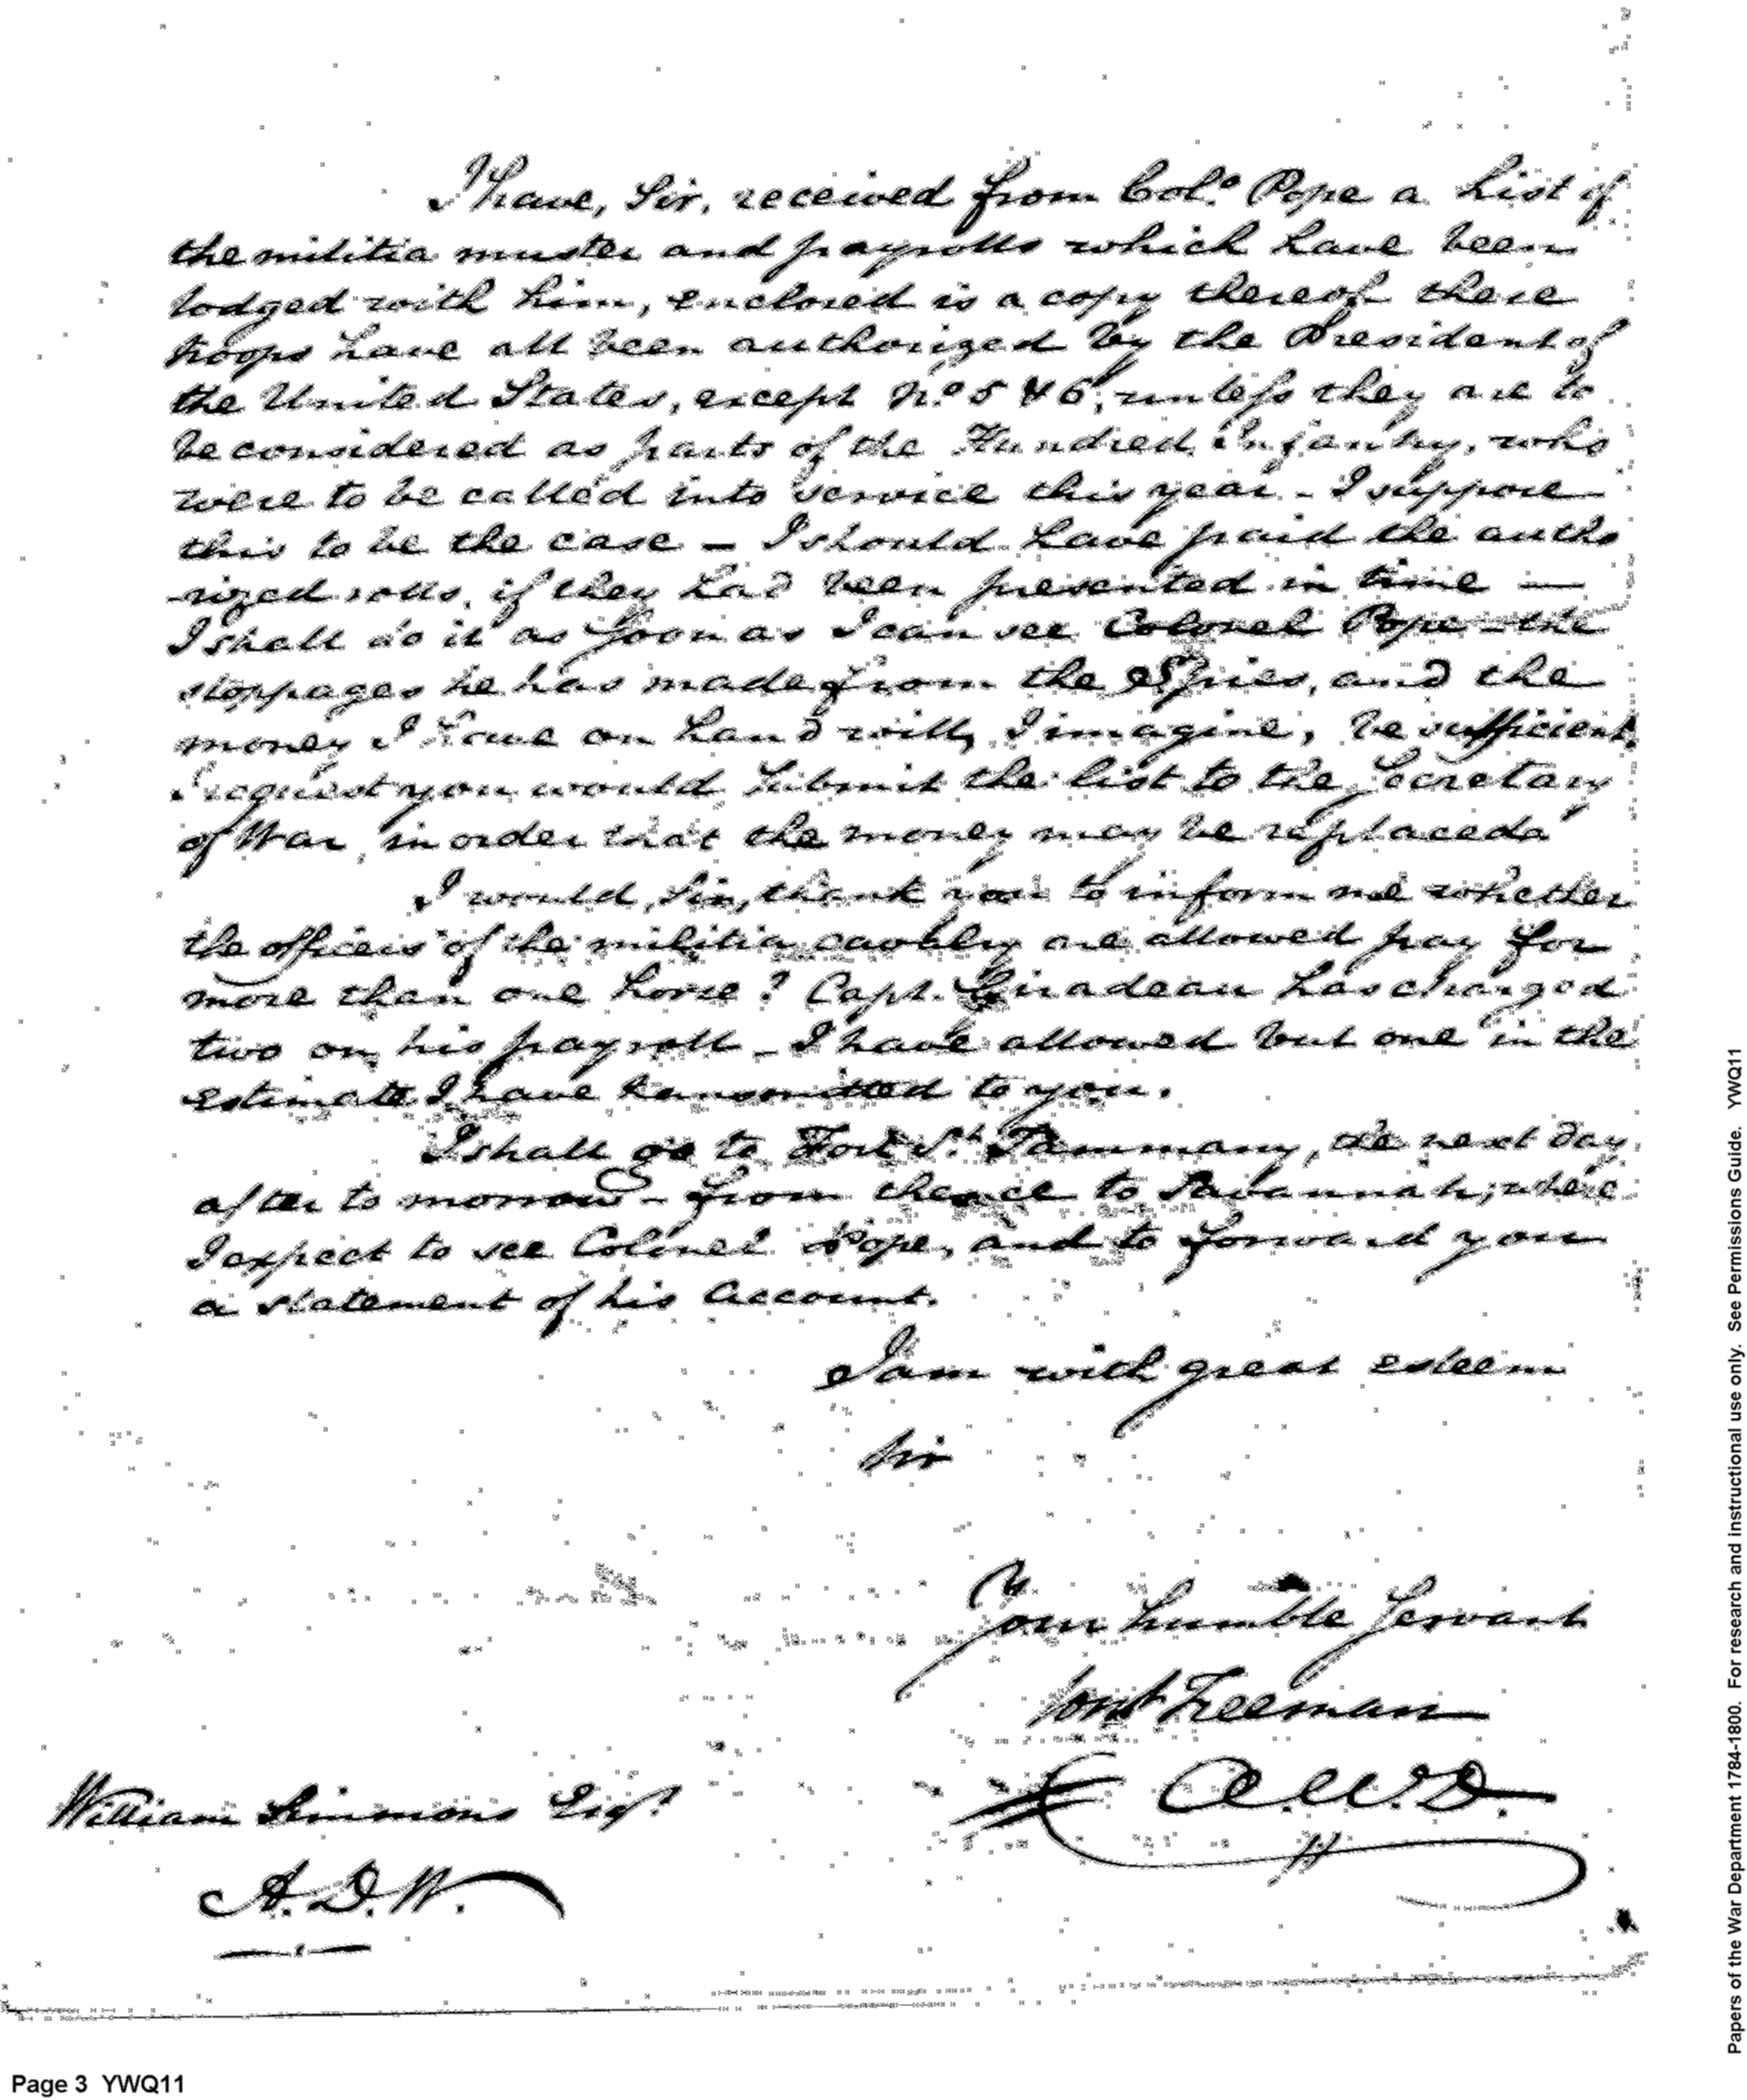 I have, Sir, received from Colo. Pope a List of
the militia muster and payrolls which have been
lodged with him, enclosed is a copy thereof these
troops have all been authorized by the President of
the United States, except No. 5 & 6, unless they are to
be considered as parts of the Hundred Infantry, who
were to be called into service this year - I suppose
this to be the case - I should have paid the autho
-rized rolls, if they had been presented in time —
I shall do it as soon as I can see Colonel Pope - the
stoppages he has made from the Spies, and the
money I have on hand will, I imagine, be sufficient
I request you would submit the list to the Secretary
of War, in order that the money may be replaced
I would, Sir, thank you to inform me whether
the officers of the militia cavalry are allowed pay for
more than one horse? Capt. Giradeau has charged
two on his payroll - I have allowed but one in the
estimate I have transmitted to you.
I shall go to Fort St. Tammany, the next day
after to morrow - from thence to Savannah; where
I expect to see Colonel Pope, and to forward you
a statement of his Account.
I am with great esteem
Sir
Your humble Servant
Const Freeman
A.W.D.
William Simmons Esqr.
A.D.W.
Page 3 YWQ11
Papers of the War Department 1784-1800. For research and instructional use only. See Permissions Guide. YWQ11